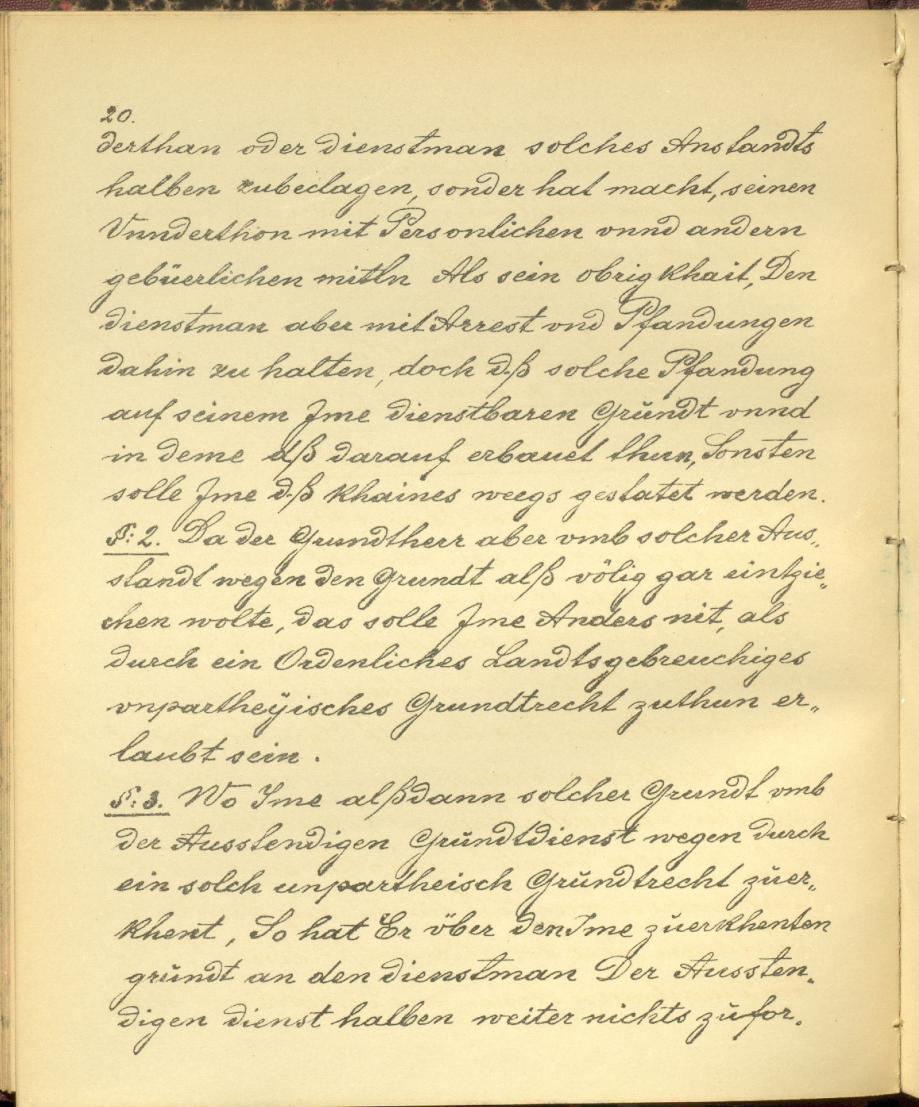 20.
derthan oder dienstman solches Anstandts
halben zubeclagen, sonder hat macht, seinen
Vnnderthon mit Personlichen vnnd andern
gebüerlichen mitln Als sein obrigkhait, Den
dienstman aber mit Arrest vnd Pfandungen
dahin zu halten, doch dß solche Pfandung
auf seinem Jme dienstbaren Gründt vnnd
in deme dß darauf erbauet thun, Sonsten
solle Jme dß khaines weegs gestatet werden.
§: 2. Da der Grundtherr aber vmb solcher Aus„
standt wegen den Grundt alß völig gar eintzie„
chen wolte, das solle Jme Anders nit, als
durch ein Ordenliches Landtsgebreuchiges
vnpartheÿisches Grundtrecht zuthun er„
laubt sein.
§: 3. Wo Jme alßdann solcher Grundt vmb
der Ausstendigen Gründtdienst wegen durch
ein solch unpartheisch Gründtrecht züer„
khent, So hat Er über den Jme züerkhenten
gründt an den dienstman Der Aussten„
digen dienst halben weiter nichts züfor.